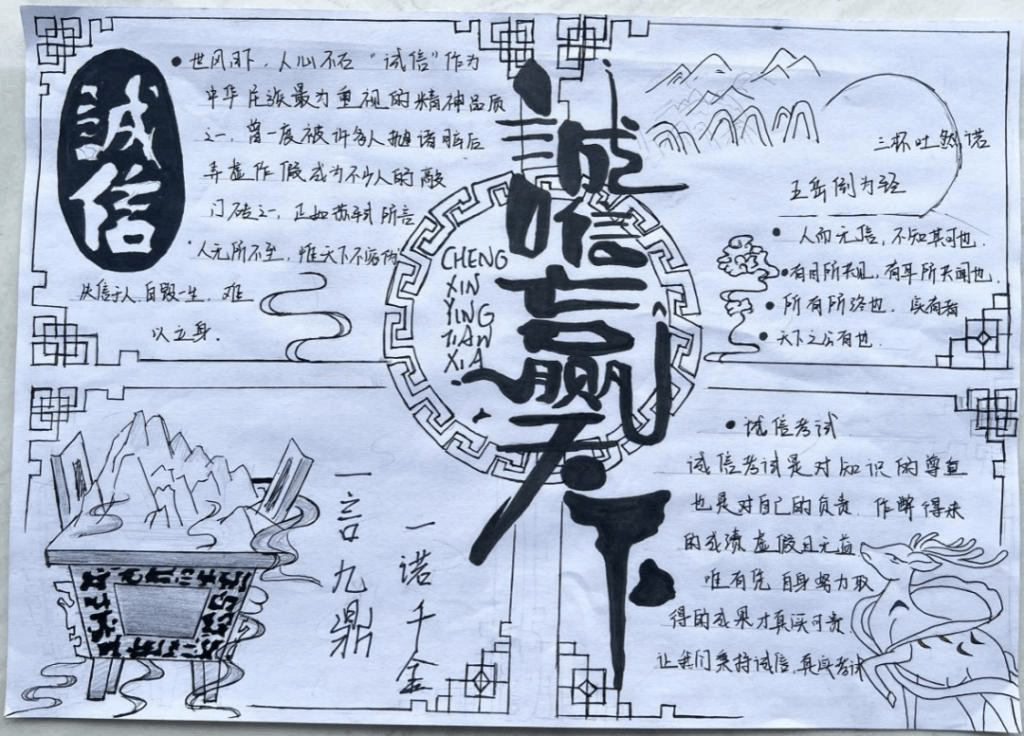 誠信
世风不下,人心不古"诚信"作为
中华民族最为重视的精神品质
之一,曾一度被许多人抛诸脑后
弄虚作假成为不少人的敲
门砖之一,正如苏轼所言
"人无所不至,惟天下不容伪
失信于人,自毁一生,难
以立身.
诚信赢天下
CHENG
XIN
YING
TIAN
XIA
三杯吐然诺
五岳倒为轻
人而无信,不知其可也.
有目所共见,有耳所共闻也.
天下之公有也.
一言九鼎
一诺千金
诚信考试
诚信考试是对知识的尊重
也是对自己的负责.作弊得来
的成绩虚假且无益
唯有凭自身努力取
得的成果才真实可贵.
让我们秉持诚信,真实考试